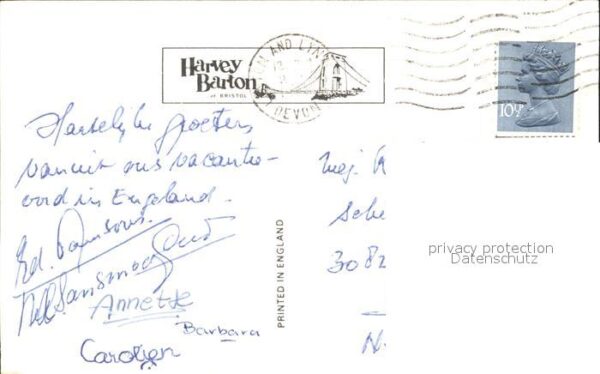 Harvey
Barton
of BRISTOL
AND LYN
DEVON
10½P
Hartelijke groeten
vanuit ons vacantie-
oord in Engeland.
Ed.
Annetje
Barbara
Carolien
PRINTED IN ENGLAND
Mej.
Sche
3082
N.
privacy protection
Datenschutz